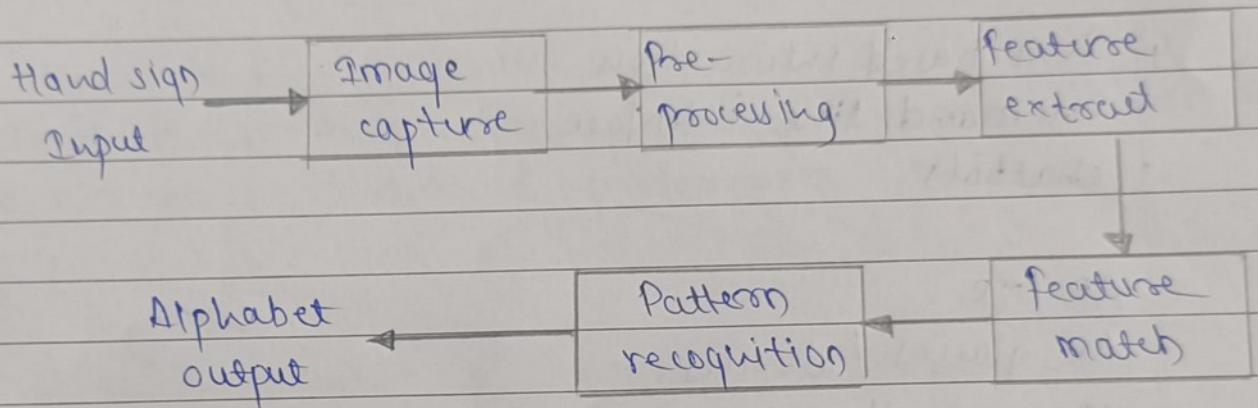 Hand sign
Input
Image
capture
Pre-
processing
feature
extract
feature
match
Pattern
recognition
Alphabet
output